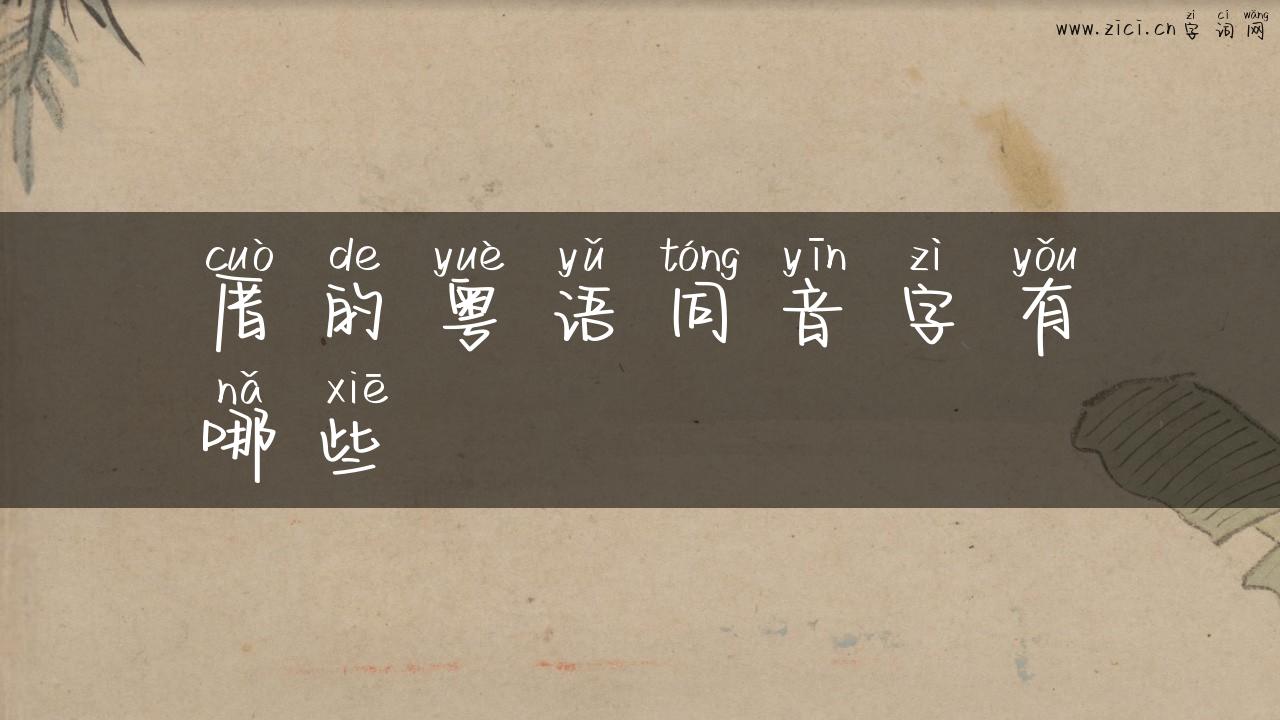 zì cí wǎng
www.zici.cn 字 词 网
cuò de yuè yǔ tóng yīn zì yǒu
厝 的 粤 语 同 音 字 有
nǎ xiē
哪 些